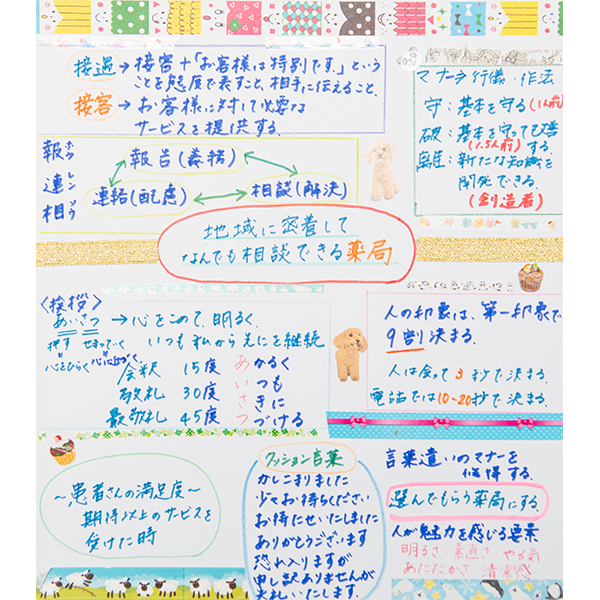 接遇→接客+「お客様は特別です。」という
ことを態度で表すこと、相手に伝えること、
接客→お客様に対して必要な
サービスを提供する。
マナー→行儀・作法
守:基本を守る(1人前)
破:基本を守って改善
(1.5人前)する。
離:新たな知識を
開発できる。
(創造者)
報 ホウ
連 レン
相 ソウ
報告(義務)
連絡(配慮)
相談(解決)
地域に密着して
なんでも相談できる薬局
<挨拶>
あいさつ→心をこめて、明るく、
押す せまっていく いつも私から先に継続
心をひらく 心に近づく
会釈 15度 あかるく
敬礼 30度 いつも
最敬礼 45度 さきに
つづける
人の印象は、第一印象で
9割決まる。
人は会って3秒で決まる。
電話では10~20秒で決まる。
~患者さんの満足度~
期待以上のサービスを
受けた時
クッション言葉
かしこまりました
少々お待ちください
お待たせいたしました
ありがとうございます
恐れ入りますが
申し訳ありませんが
失礼いたします。
言葉遣いのマナーを
修得する。
選んでもらう薬局にする。
人が魅力を感じる要素
明るさ・素直さ・やる気
あたたかさ・清潔感